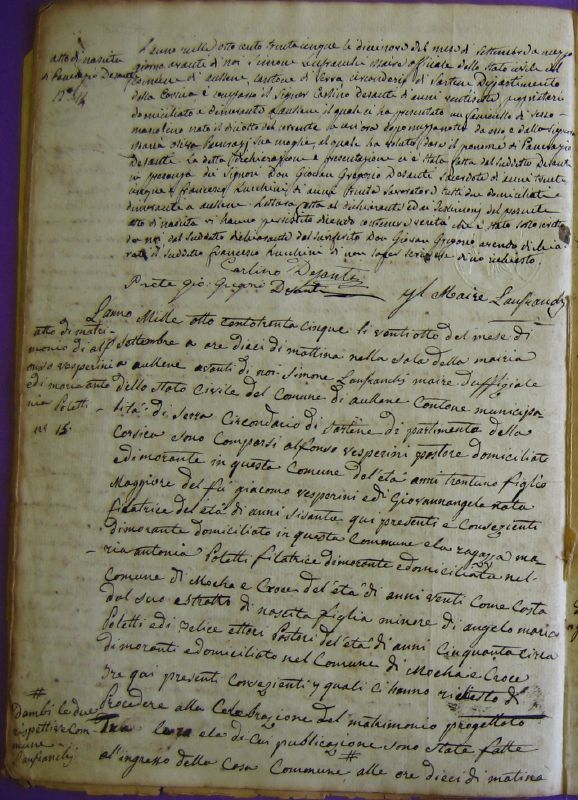 atto di nascita
di Pancrazio Desanti
N° 14
L'anno mille otto cento trenta cinque li diecinove del mese di settembre a mezzo
giorno avante di noi Simone Lanfranchi maire officiale dello stato civile del
Comune di aullene, Cantone di Serra circondario di Sarteni Dipartimento
della Corsica è comparso il Signor Carlino Desanti d'anni ventisette proprietario
domiciliato e dimorante l'aullene il quale ci ha presentato un fanciullo di sesso
mascolino nato il dieciotto del corrente
Maria sua moglie, al quale ha voluto dare il prenome di Pancrazio
Desanti. La detta dichiarazione e presentazione ci è stata fatta dal suddetto Desanti
in presenza dei Signori Don Giovan Gregorio Desanti sacerdote di anni trenta
cinque e Francesco Lucchini di anni trenta lavoratore tutti due domiciliati e
dimorante a aullene. Lettura fatta al dichiarante ed ai testimonj del presente
atto di nascita vi hanno persistito dicendo contenere verità che è stato sottoscritto
da noi dal suddetto dichiarante dal surriferito Don Giovan Gregorio avendo dichia-
rato il suddetto Francesco Lucchini di non saper scrivere di ciò richiesto.
Carlino Desanti
Prete gio: Gregorio Desanti
Il Maire Lanfranchi
atto di matri-
monio di alf-
onso vesperini
ed i maria anto
nia Poletti
n° 15.
L'anno Mille otto centotrenta cinque li ventiotto del mese di
Settembre a ore dieci di mattina nella sala della mairia
a aullene avanti di noi Simone Lanfranchi maire Duffiziale
dello stato Civile del Comune di aullene Contone municipa-
lità di Serra Circondario di Sartene di partimento della
Corsica sono Comparsi alfonso vesperini pastore domiciliato
edimorante in questa Comune del'età anni trentuno figlio
Maggiore del fù giacomo vesperini e di Giovannangela nata
filatrice del'età di anni sisanta qui presenti e Consezienti
dimorante domiciliato in questa Commune e la ragazza ma-
ria antonia Poletti filatrice dimorante e domiciliata nel-
Comune di Mocha e Croce del'età di anni venti Come Costa
dal suo estratto di nascita figlia minore di angelo maria
Poletti e di Felice ettori Pastori del'età di anni Cinquanta circa
dimoranti e domiciliato nel Comune di Mocha e Croce
qui presenti Consezienti y quali ci hanno richiesto di
Procedere alla Celebrazione del matrimonio progettato
Tra loro e la di Cui publicazione sono State fatte
al'ingresso della Casa Commune # alle ore dieci di matina
#
D'ambi le due
rispettive Com-
mune
Lanfranchi